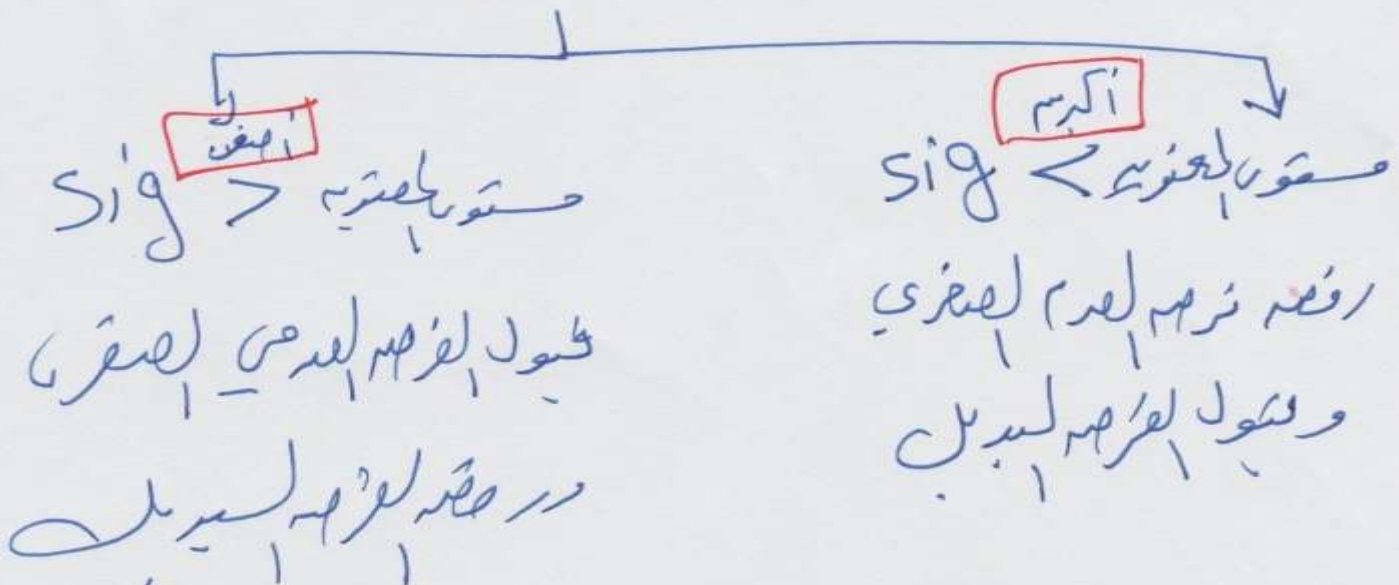 أكبر من
مستوى المعنوية > sig
رفض فرض العدم الصفري
وقبول الفرض البديل
أصغر من
مستوى المعنوية < sig
قبول الفرض العدمي الصفري
ورفض الفرض البديل